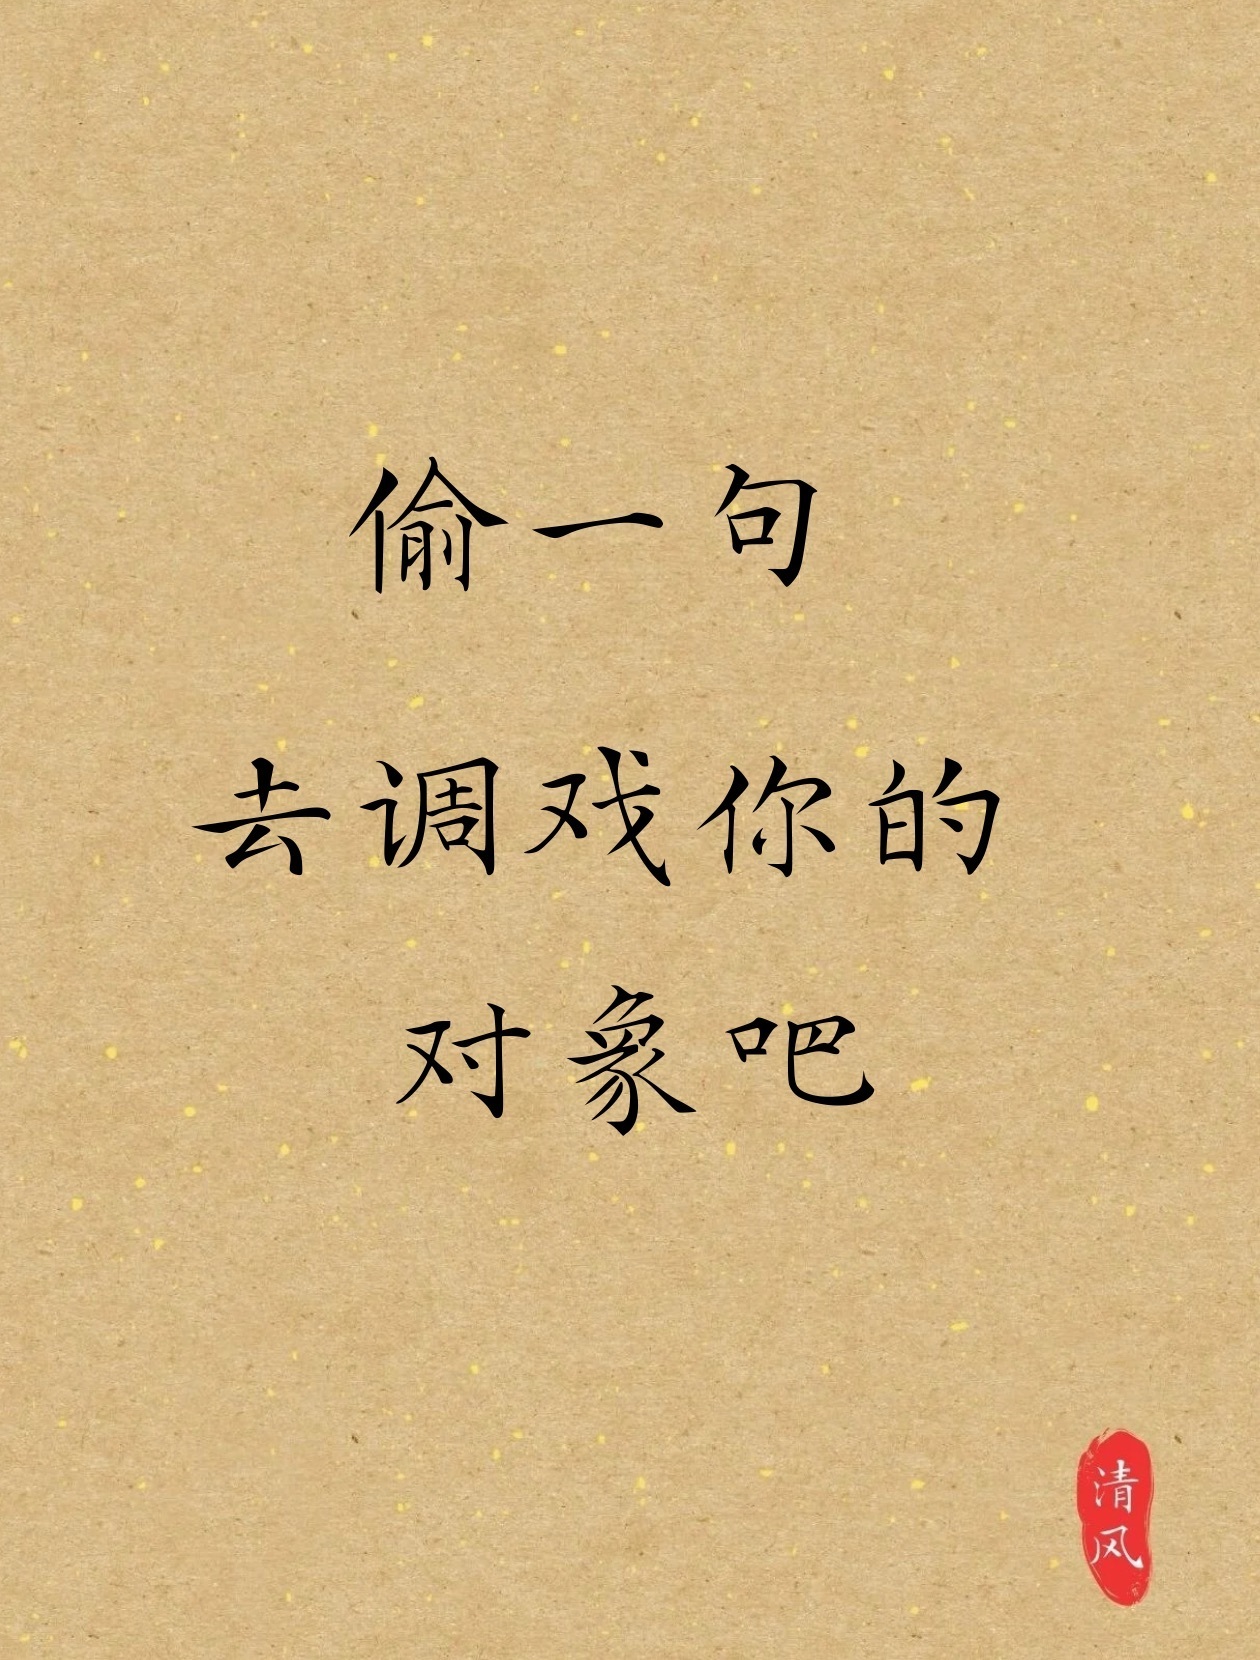 偷一句
去调戏你的
对象吧
清风